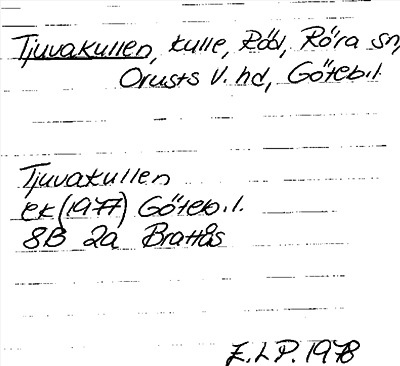 Tjuvakullen, kulle, Röd, Röra sn,
Orusts V. hd, Göteb.l.
Tjuvakullen
ek (1977) Göteb.l.
8B 2a Brattås
E.L P. 1978